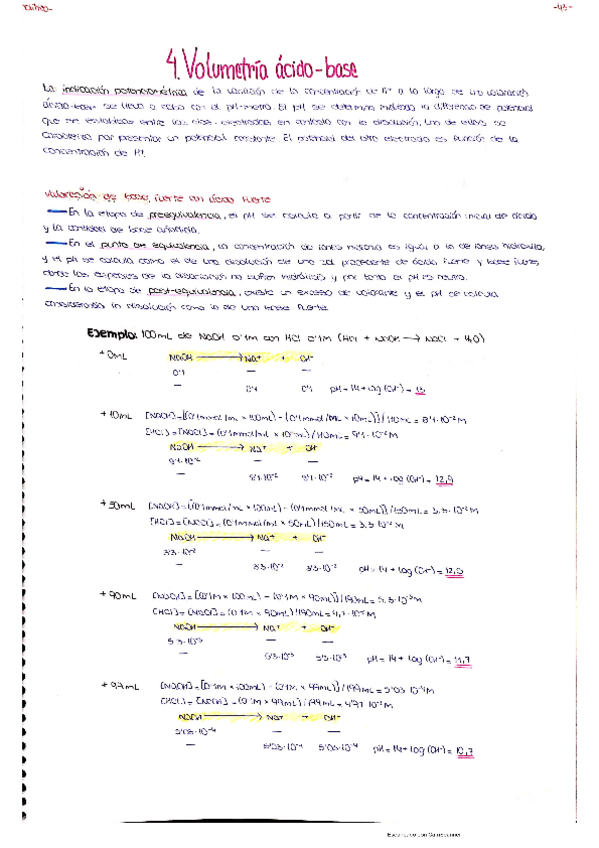 -43-
4. Volumetría ácido-base
La indicación potenciométrica de la variación de la concentración de H+ a lo largo de una valoración
ácido-base se lleva a cabo con el pH-metro. El pH se determina midiendo la diferencia de potencial
que se establece entre los dos electrodos en contacto con la disolución. Uno de ellos se
caracteriza por presentar un potencial constante. El potencial del otro electrodo es función de la
concentración de H+.
Valoración de base fuerte con ácido fuerte
En la etapa de preequivalencia, el pH se calcula a partir de la concentración inicial de ácido
y la cantidad de base añadida.
En el punto de equivalencia, la concentración de iones hidronio es igual a la de iones hidroxilo,
y el pH se calcula como el de una disolución de una sal procedente de ácido fuerte y base fuerte,
donde las especies de la disociación no sufren hidrólisis y por tanto el pH es neutro.
En la etapa de post-equivalencia, existe un exceso de valorante y el pH se calcula
considerando la disolución como la de una base fuerte.
Ejemplo: 100mL de NaOH 0'1M con HCl 0'1M (HCl + NaOH → NaCl + H2O)
+ 0mL NaOH → Na+ + OH-
0'1 — —
— 0'1 0'1 pH = 14 + log (OH-) = 13
+ 10mL [NaOH] = [(0'1mmol/mL × 100mL) - (0'1mmol/mL × 10mL)]/110mL = 8'1·10-2M
[HCl] = [NaCl] = (0'1mmol/mL × 10mL)/110mL = 9'1·10-3M
NaOH → Na+ + OH-
8'1·10-2 — —
— 8'1·10-2 8'1·10-2 pH = 14 + log (OH-) = 12,9
+ 50mL [NaOH] = [(0'1mmol/mL × 100mL) - (0'1mmol/mL × 50mL)]/150mL = 3,3·10-2M
[HCl] = [NaCl] = (0'1mmol/mL × 50mL)/150mL = 3,3·10-2M
NaOH → Na+ + OH-
3'3·10-2 — —
— 3'3·10-2 3'3·10-2 pH = 14 + log (OH-) =
+ 90mL [NaOH] = [(0'1M × 100mL) - (0'1M × 90mL)]/190mL = 5,3·10-3M
[HCl] = [NaCl] = (0'1M × 90mL)/190mL = 4,7·10-2M
NaOH → Na+ + OH-
5'3·10-3 — —
— 5'3·10-3 5'3·10-3 pH = 14 + log (OH-) = 11,7
+ 99mL [NaOH] = [(0'1M × 100mL) - (0'1M × 99mL)]/199mL = 5'03·10-4M
[HCl] = [NaCl] = (0'1M × 99mL)/199mL = 4'97·10-2M
NaOH → Na+ + OH-
5'03·10-4 — —
— 5'03·10-4 5'03·10-4 pH = 14 + log (OH-) = 10,7
Escaneado con CamScanner